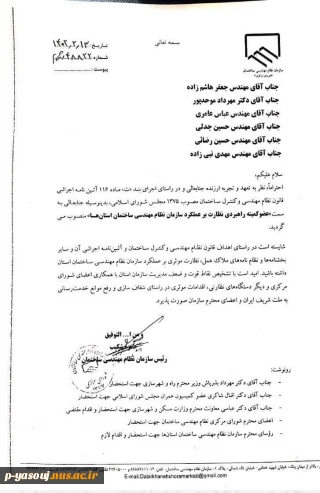 بسمه تعالی
تاریخ: ۱۴۰۲،۲،۱۳
شماره ۴۸۸۲۲
پیوست:
سازمان نظام مهندسی ساختمان
جناب آقای مهندس جعفر هاشم زاده
جناب آقای دکتر مهرداد موحدپور
جناب آقای مهندس عباس عامری
جناب آقای مهندس حسین جدلی
جناب آقای مهندس حسین رضائی
جناب آقای مهندس مهدی نبی زاده
سلام علیکم،
احتراماً، نظر به تعهد و تجربه ارزنده جنابعالی و در راستای اجرای بند ماده ۱۱۶ آئین نامه اجرائی
قانون نظام مهندسی و کنترل ساختمان مصوب ۱۳۷۵ مجلس شورای اسلامی، بدینوسیله جنابعالی به
سمت «عضو کمیته راهبردی نظارت بر عملکرد سازمان نظام مهندسی ساختمان استان‌ها» منصوب می
گردید.
شایسته است در راستای اهداف قانون نظام مهندسی و کنترل ساختمان و آئین‌نامه اجرائی آن و سایر
بخشنامه‌ها و نظام نامه‌های ملاک عمل، نظارت موثری بر عملکرد سازمان نظام مهندسی ساختمان استان
داشته باشید. امید است با تشخیص نقاط قوت و ضعف مدیریت سازمان استان با همکاری اعضای شورای
مرکزی و دیگر دستگاه‌های نظارتی، اقدامات موثری در راستای شفاف سازی و رفع موانع خدمت‌رسانی
به ملت شریف ایران و اعضای محترم سازمان صورت پذیرد.
و من ا... التوفیق
رئیس سازمان نظام مهندسی ساختمان
رونوشت:
- جناب آقای دکتر مهرداد بذرپاش وزیر محترم راه و شهرسازی جهت استحضار
- جناب آقای دکتر اقبال شاکری عضو کمیسیون عمران مجلس شورای اسلامی جهت استحضار
- جناب آقای دکتر عباسی معاونت محترم وزارت مسکن و شهرسازی جهت استحضار و اقدام مقتضی
- اعضای محترم شورای مرکزی نظام مهندسی ساختمان جهت استحضار
- رؤسای محترم سازمان نظام مهندسی ساختمان استان‌ها جهت استحضار و اقدام لازم
p-yasouj.nus.ac.ir